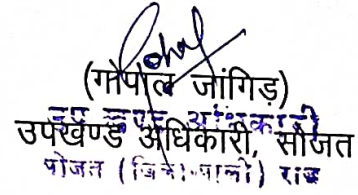 (गोपाल जांगिड़)
उप खण्ड अधिकारी
उपखण्ड अधिकारी, सोजत
सोजत (जिला-पाली) राज